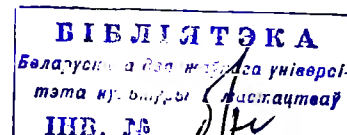 БІБЛІЯТЭКА
Беларуск а дзяржаўнага універсі-
тэта культуры і мастацтваў
ІНВ. №